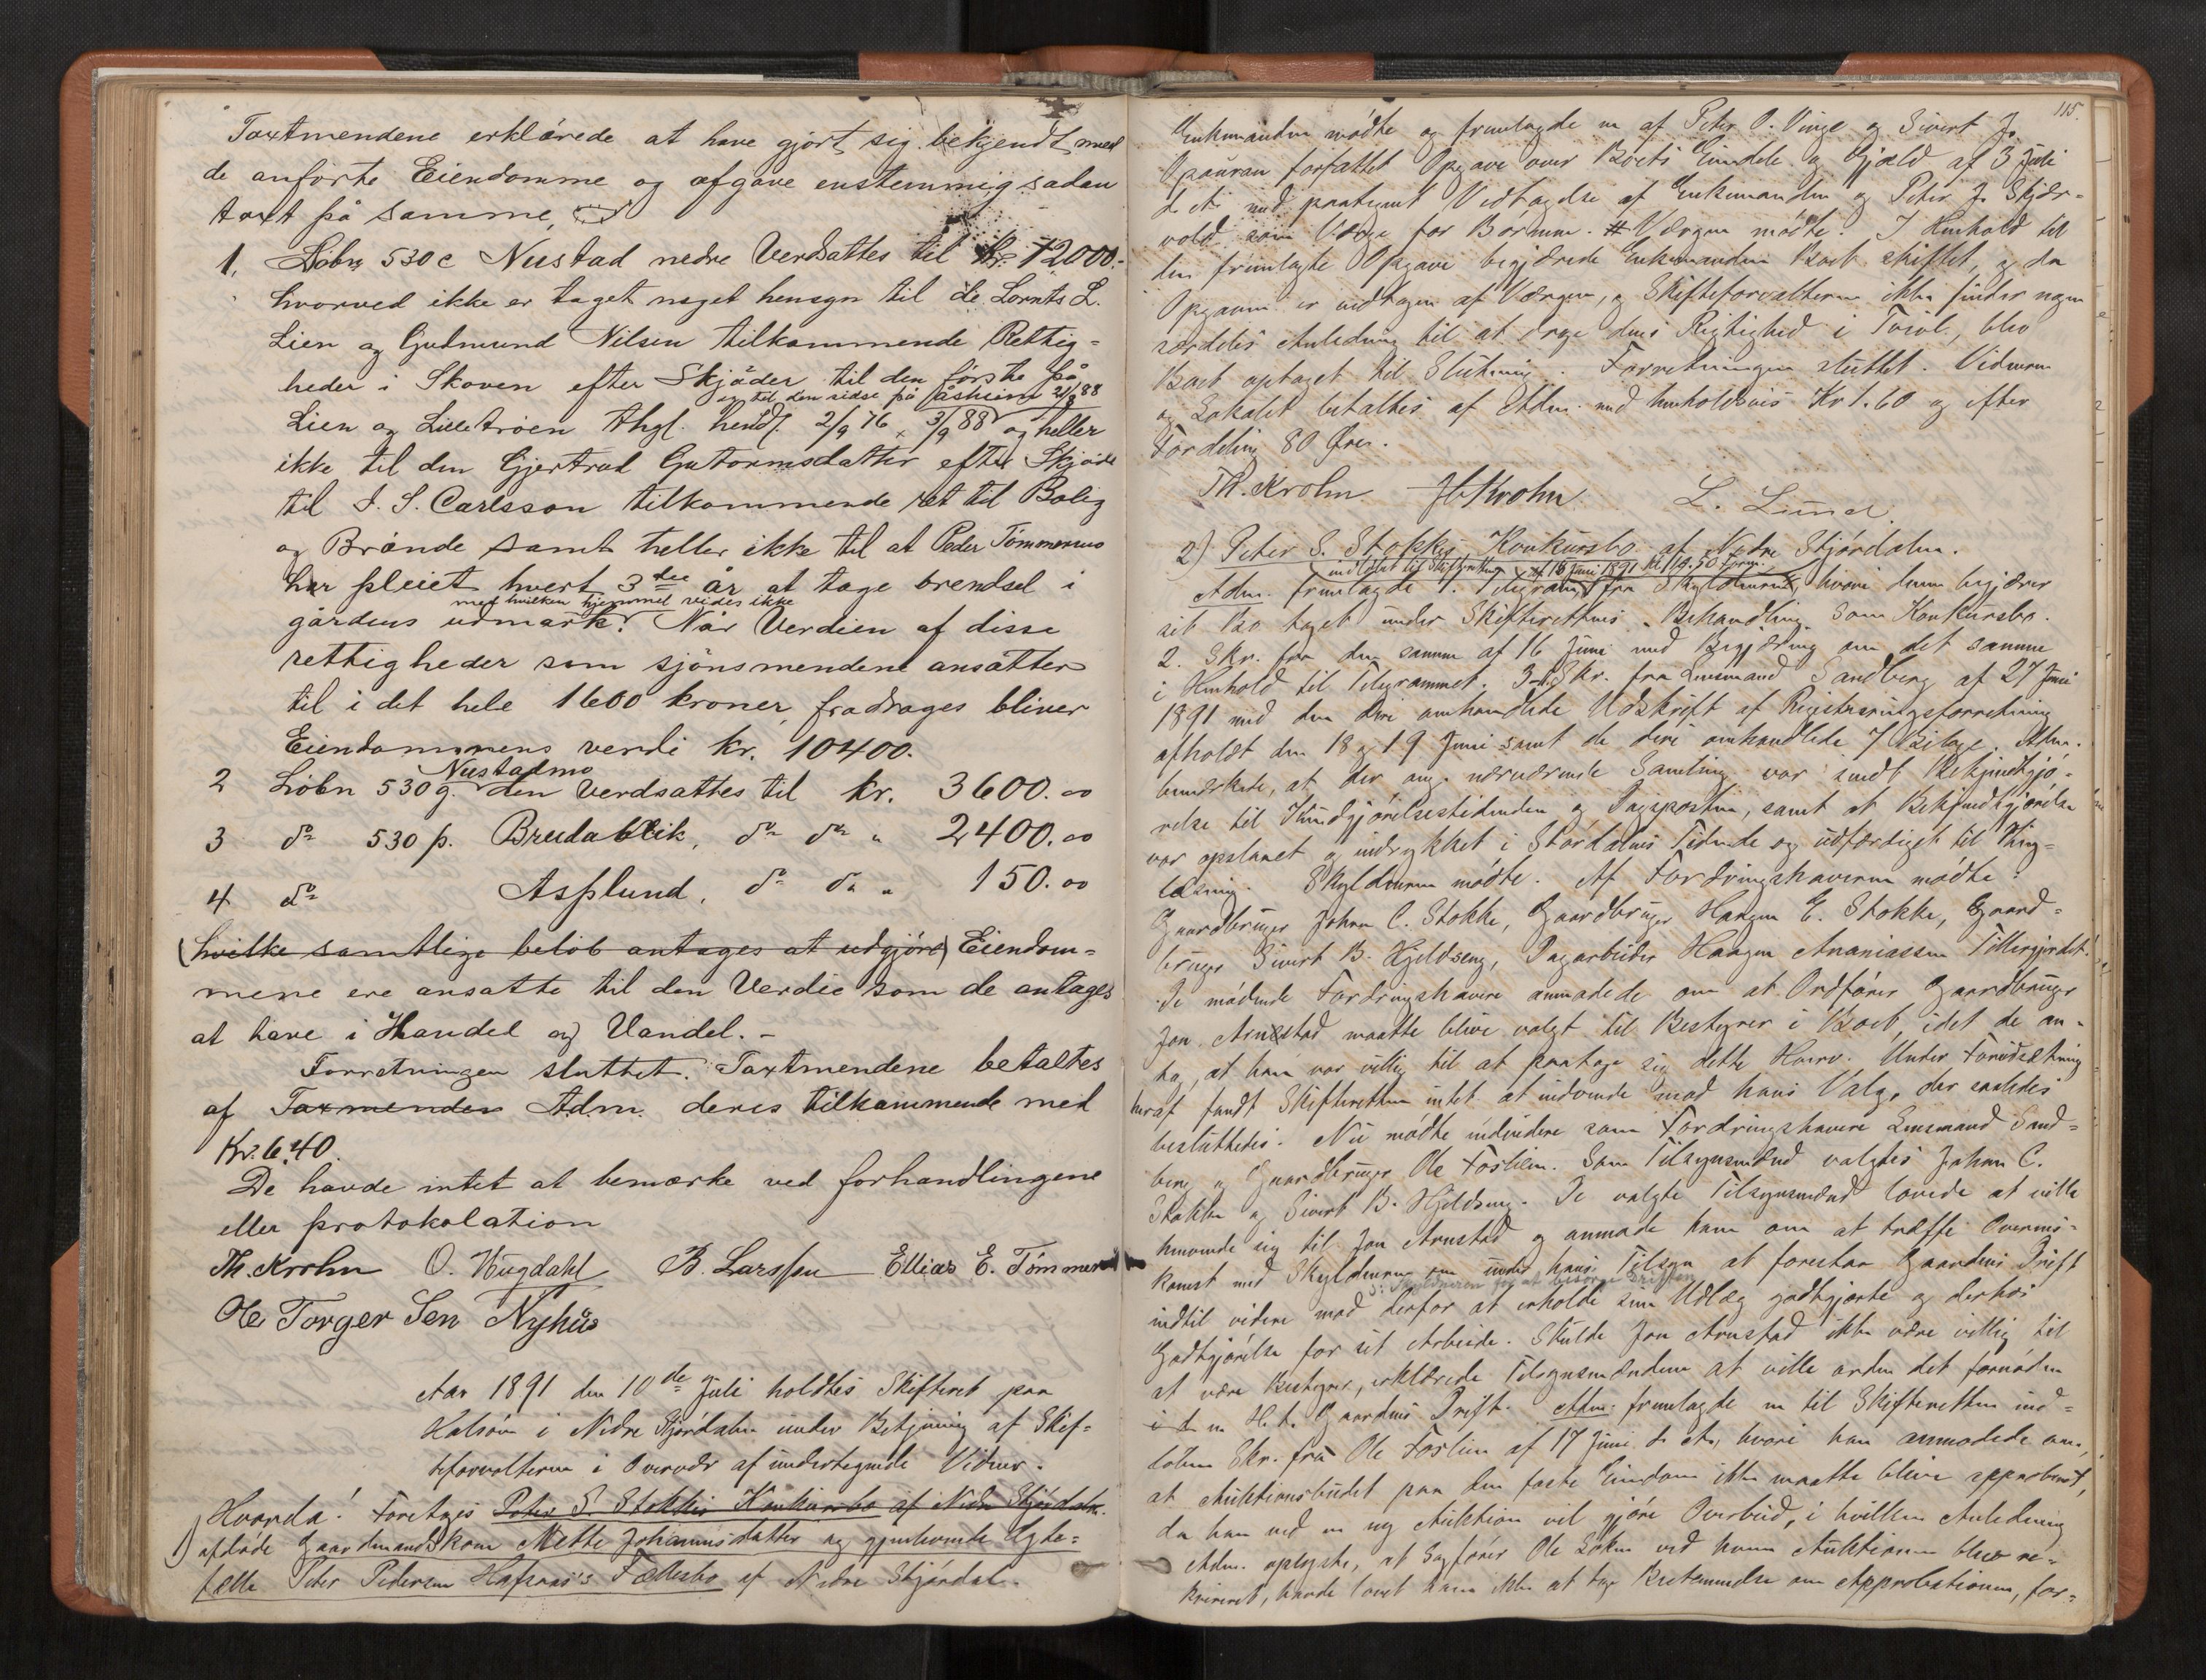 Taxtmendene erklårede at have gjort sig bekjendt med
de anförte Eiendomme og afgave enstemmig sådan
taxt på samme,
1. Löbn 530c Nustad nedre Verdsattes til kr. 12000.-
hvorved ikke er taget noget hensyn til de Lornts L.
Lien og Gudmund Nilsen tilkommende Rettig-
heder i Skoven efter Skjöder til den förste på
og til den sidse på Åsheim 21/8 88
Lien og Lilletröen thgl. hendl. 2/9 76, 3/9 88 og heller
ikke til den Gjertrud Gutormsdatter efter Skjöde
til J. S. Carlsson tilkommende ret til Bolig
og Brände samt heller ikke til at Peder Tömmermo
har pleiet hvert 3die år at tage brendsel i
med hvilken hjemmel vides ikke
gårdens udmark. Når Verdien af disse
rettigheder som sjönsmendene ansatter
til i det hele 1600 kroner, fradrages bliver
Eiendommens verdi kr. 10400.
Nustadmo
2 Löbn 530g. den Verdsattes til kr. 3600.00
3 do 530 p. Breidablik, do do " 2400.00
4 do Asplund, do do " 150.00
(hvilke samtlige belöb antages at udgjöre) Eiendom-
mene ere ansatte til den Verdie som de antages
at have i Handel og Vandel.-
Forretningen sluttet. Taxtmendene betaltes
af Taxmenden Adm. deres tilkommende med
Kr. 6.40.
De havde intet at bemærke ved forhandlingene
eller protokolation
Th. Krohn O. Hugdahl B. Larssen Ellias E. Tømmer
Ole Torger Sen Nyhus
Aar 1891 den 10de Juli holdtes Skifteret paa
Halsøen i Nedre Stjørdalen under Betjening af Skif-
teforvalteren i Overvær af undertegnede Vidner.
Hvorda! Foretages Peter S. Stokkes Konkursbo af Nedre Stjørdalen.
1) afdøde Gaardmandskone Mette Johannesdatter og gjenlevende Ægte-
fælle Peter Pedersen Hafsaas's Fællesbo af Nedre Stjørdal.
115.
Enkemanden mødte og fremlagde en af Peter O. Vinge og Sivert Js.
Opauran forfattet Opgave over Boets Eiendele og Gjæld af 3 Juli
d. A. med paategnet Vedtagelse af Enkemanden og Peter J. Skjær-
vold som Værge for Børnene. # Værgen mødte. I Henhold til
den fremlagte Opgave begjærede Enkemanden Boet skiftet, og da
Opgaven er vedtagen af Værgen, og Skifteforvalteren ikke finder nogen
særdeles Anledning til at drage dens Rigtighed i Tvivl, blev
Boet optaget til Slutning. Forretningen sluttet. Vidnerne
og Lokalet betaltes af Adm. med henholdsvis Kr 1.60 og efter
Fordeling 80 Øre.
Th. Krohn JbKrohn L. Lund.
2) Peter S. Stokkes Konkursbo af Nedre Stjørdalen.
indløbet til Skifteretten af 16 Juni 1891 Kl. 10.50 Form.
Adm. fremlagde 1. Telegram fra Skyldneren, hvori han begjærer
sit Bo taget under Skifterettens Behandling som Konkursbo.
2. Skr. fra den samme af 16 Juni med Begjæring om det samme
i Henhold til Telegrammet. 3. Skr. fra Lensmand Sandberg af 27 Juni
1891 med den deri omhandlede Udskrift af Registreringsforretning
afholdt den 18 og 19 Juni samt de deri omhandlede 7 Bilage. Adm.
bemærkede, at der ang. nærværende Samling var sendt Bekjendtgjø-
relse til Kundgjørelsestidenden og Dagsposten, samt at Bekjendtgjørelse
var opslaaet og indrykket i Stordalens Tidende og udfærdiget til Thing-
læsning. Skyldneren mødte. Af Fordringshaverne mødte:
Gaardbruger Johan C. Stokke, Gaardbruger Haagen E. Stokke, Gaard-
bruger Sivert B. Hjeldseng, Dagarbeider Haagen Ananiassen Tillergjerdet.
De mødende Fordringshavere anmodede om at Ordfører Gaardbruger
Jon Arnstad maatte blive valgt til Bestyrer i Boet, idet de an-
tog, at han var villig til at paatage sig dette Hverv. Under Forudsætning
heraf fandt Skifteretten intet at indvende mod hans Valg, der saaledes
besluttedes. Nu mødte endvidere som Fordringshavere Lensmand Sand-
berg og Gaardbruger Ole Foslien. Som Tilsynsmænd valgtes Johan C.
Stokke og Sivert B. Hjeldseng. De valgte Tilsynsmænd lovede at ville
henvende sig til Jon Arnstad og anmode ham om at træffe Overens-
komst med Skyldneren om under hans Tilsyn at forestaa Gaardens Drift
indtil videre mod derfor at erholde sine Udlæg godtgjorte og derhos
Godtgjørelse for sit Arbeide. Skulde Jon Arnstad ikke være villig til
at være Bestyrer, erklærede Tilsynsmændene at ville ordne det fornødne
m. H. t. Gaardens Drift. Adm. fremlagde en til Skifteretten ind-
løben Skr. fra Ole Foslien af 17 Juni d. A., hvori han anmodede om,
at Auktionsbudet paa den faste Eiendom ikke maatte blive approberet,
da han ved en ny Auktion vil gjøre Overbud, i hvilken Anledning
Adm. oplyste, at Sagfører Ole Løken ved hvem Auktionen blev re-
kvireret, havde lovet ham ikke at tage Bestemmelse om Approbationen, for-